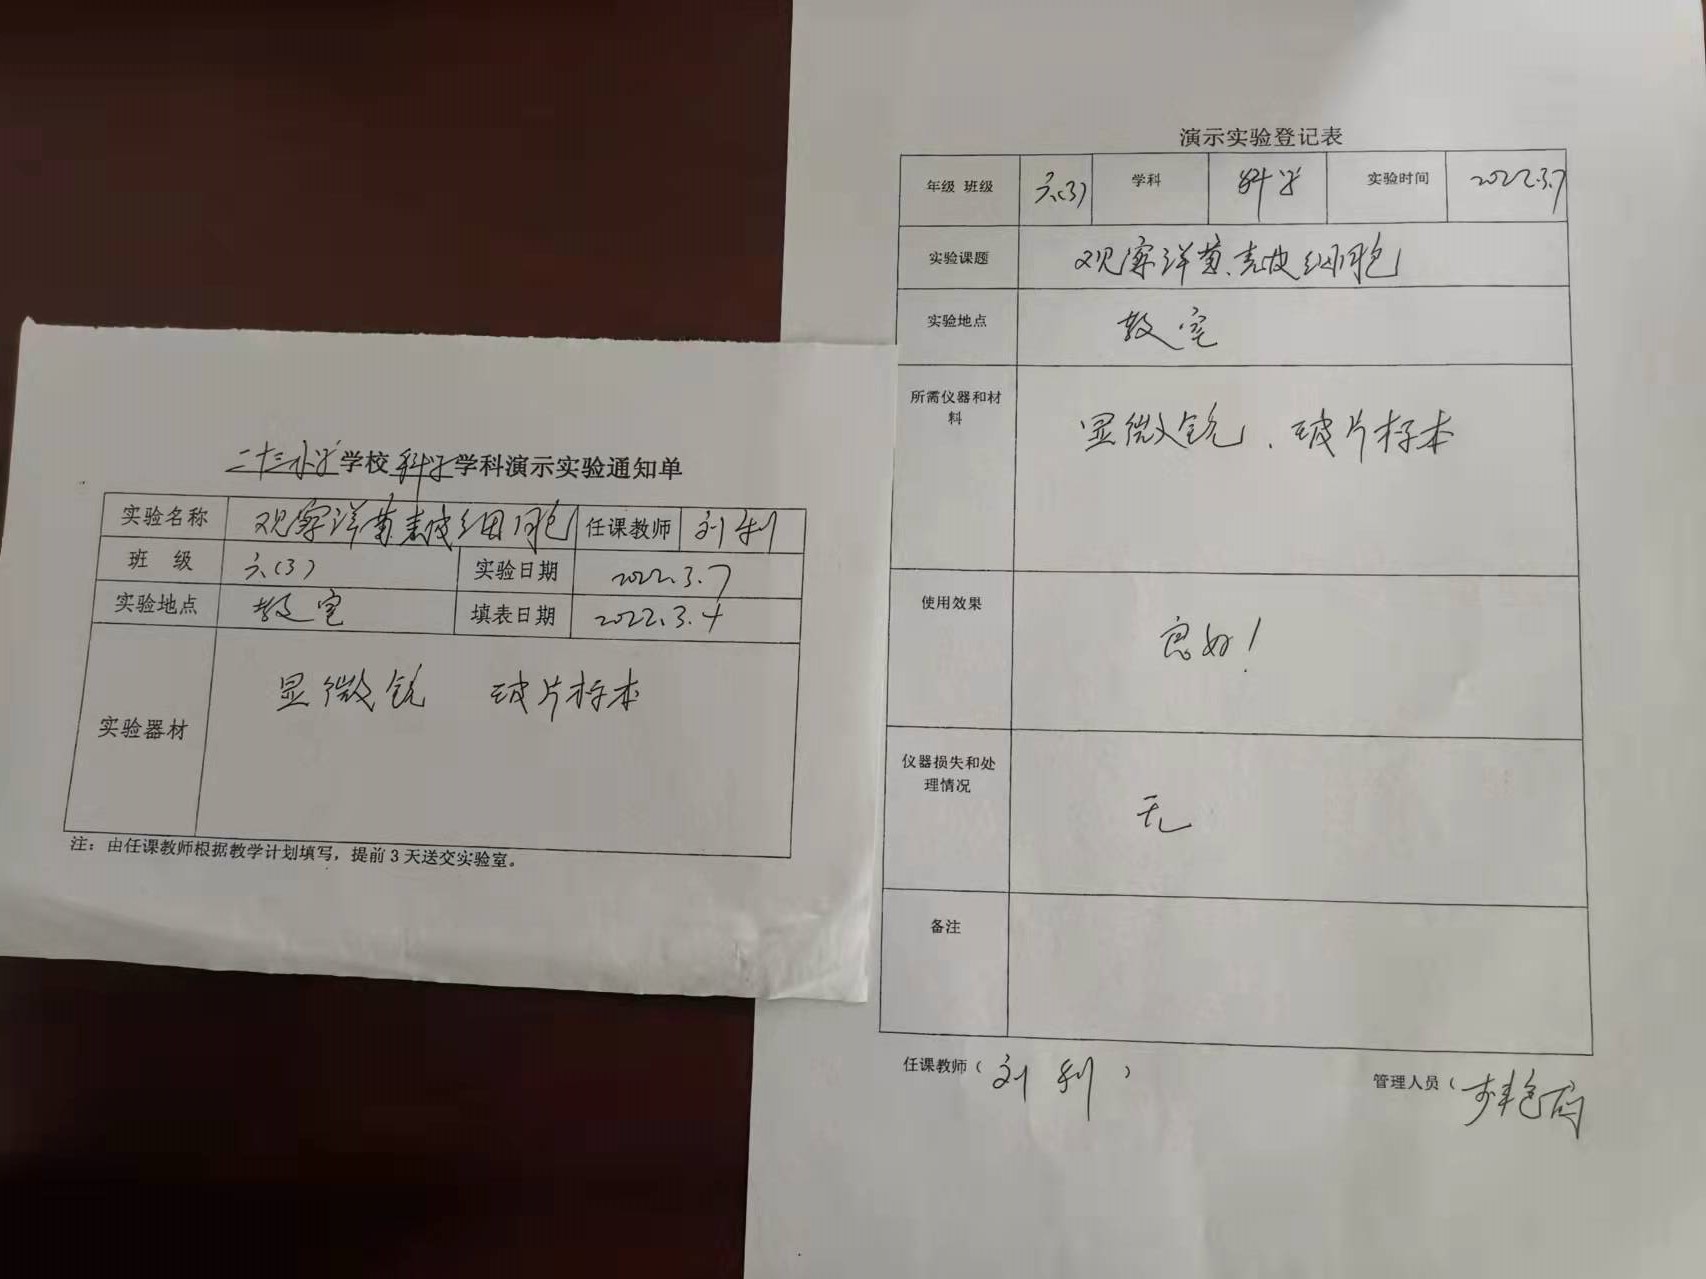 二十三小学学校科学学科演示实验通知单
实验名称 观察洋葱表皮细胞 任课教师 刘利
班 级 六(3) 实验日期 2022.3.7
实验地点 教室 填表日期 2022.3.4
实验器材 显微镜 玻片标本
注：由任课教师根据教学计划填写，提前3天送交实验室。
演示实验登记表
年级 班级 六(3) 学科 科学 实验时间 2022.3.7
实验课题 观察洋葱表皮细胞
实验地点 教室
所需仪器和材
料
显微镜、玻片标本
使用效果 良好！
仪器损失和处
理情况
无
备注
任课教师（刘利）
管理人员（